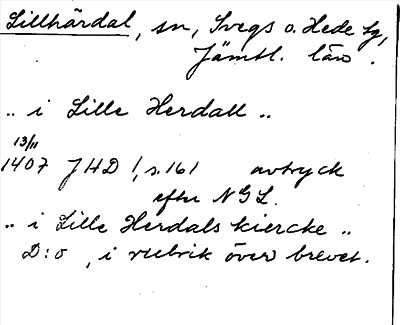 Lillhärdal, sn, Svegs o. Hede tg,
Jämtl. län.
.. i Lille Herdall ..
13/11
1407 JHD 1, s. 161 avtryck
efter NGL.
.. i Lille Herdals kiercke ..
D:o, i rubrik över brevet.